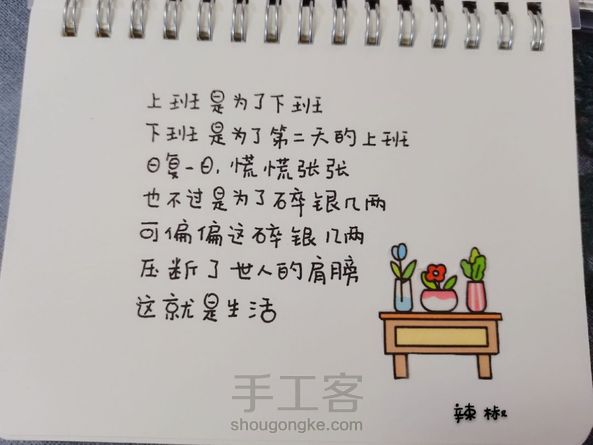 上班是为了下班
下班是为了第二天的上班
日复一日，慌慌张张
也不过是为了碎银几两
可偏偏这碎银几两
压断了世人的肩膀
这就是生活
辣椒
手工客
shougongke.com